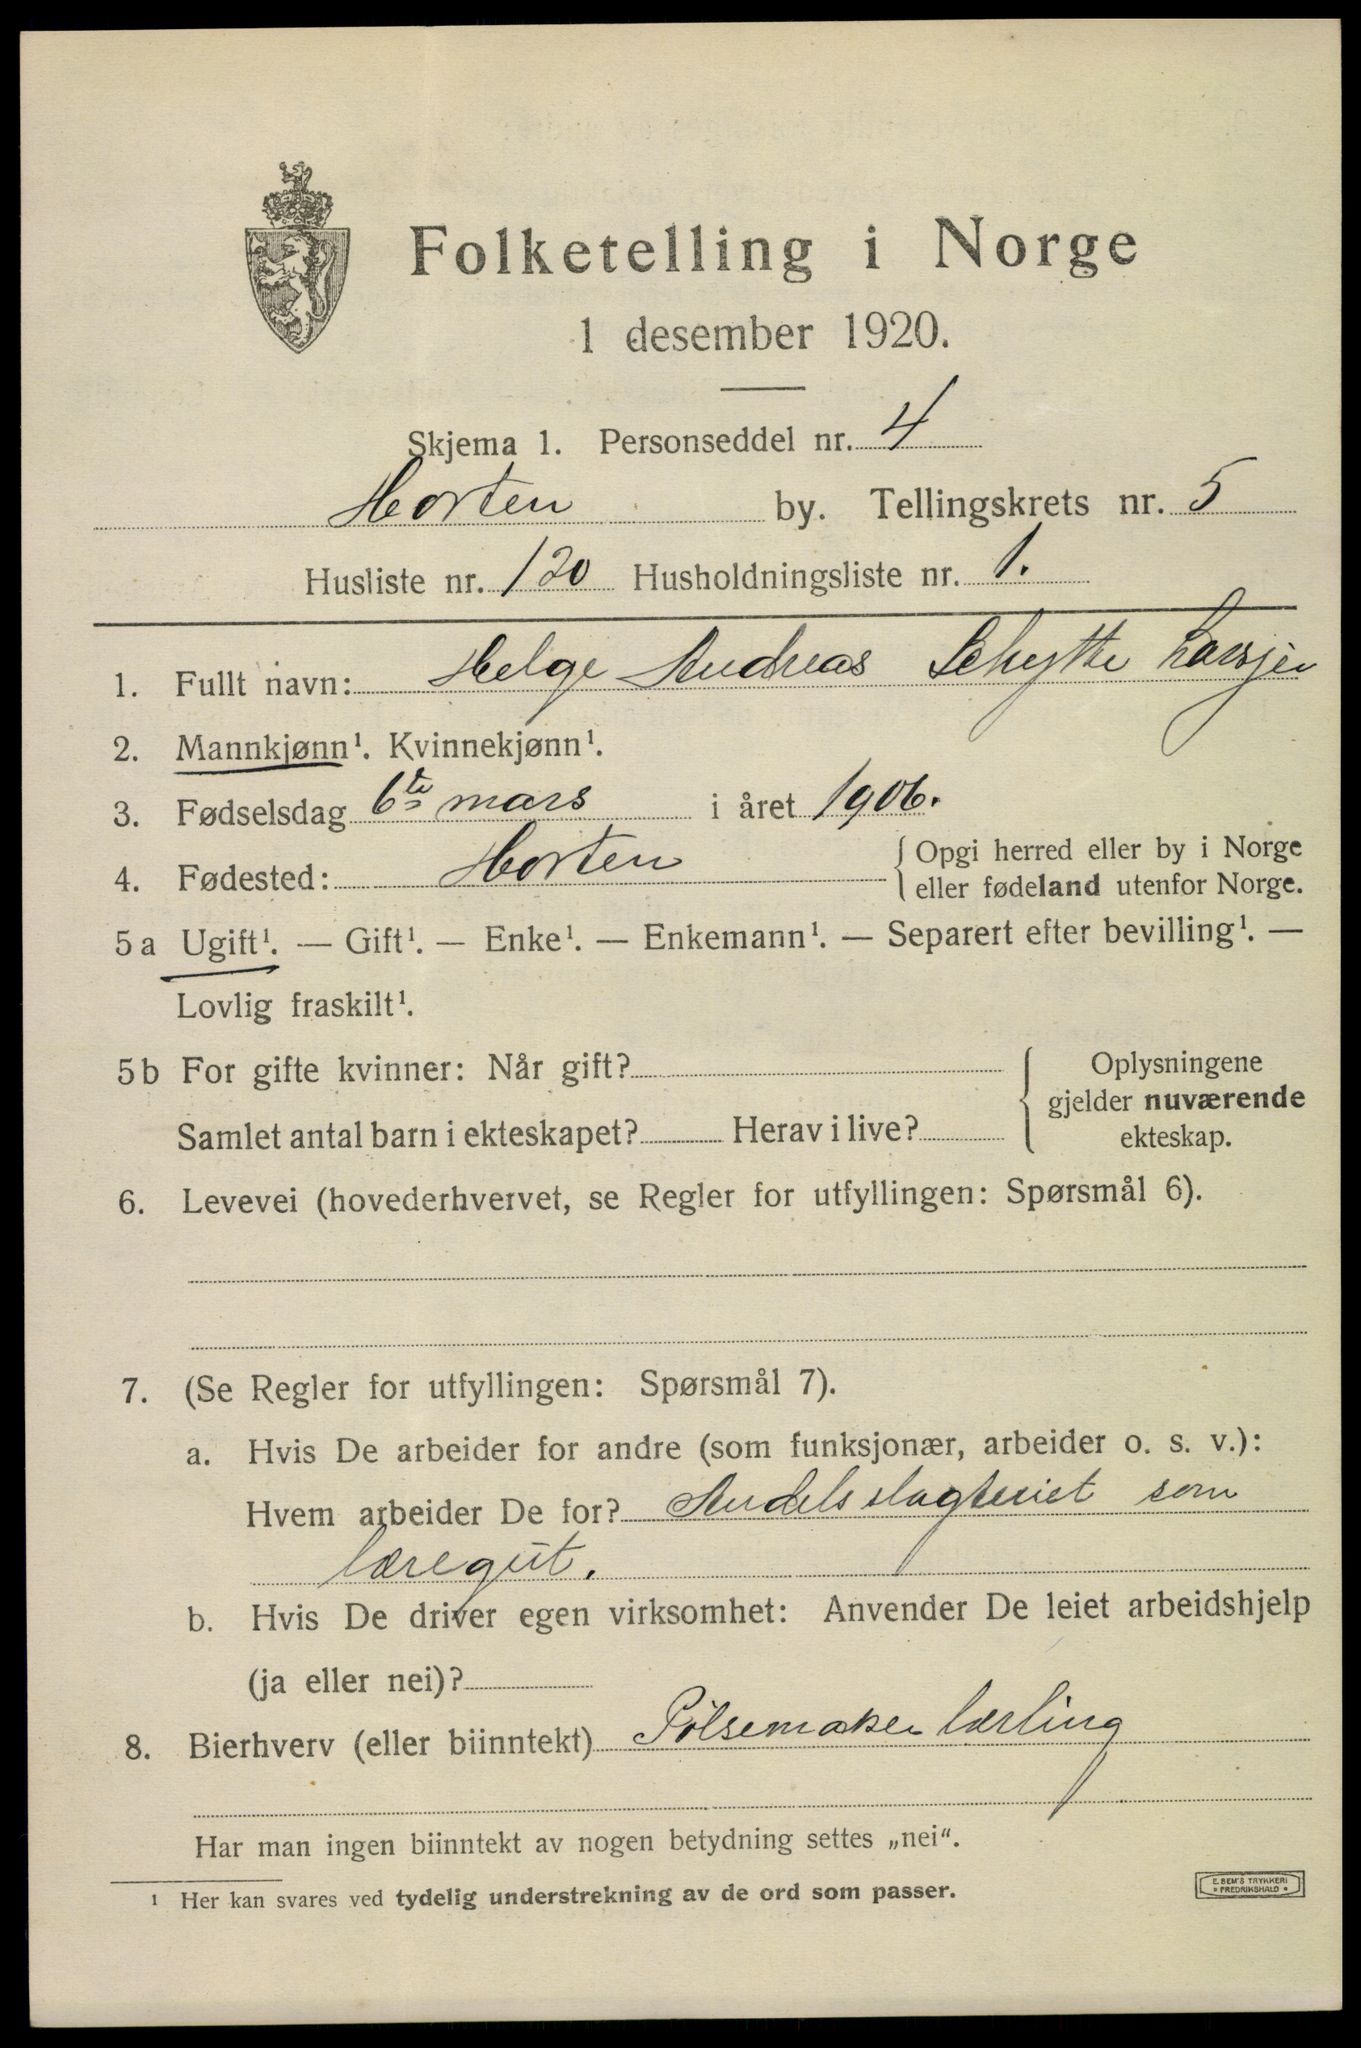 Folketelling i Norge
1 desember 1920.
Skjema 1. Personseddel nr. 4
Horten by. Tellingskrets nr. 5
Husliste nr. 120 Husholdningsliste nr. 1.
1. Fullt navn: Helge Andreas Schytte
2. Mannkjønn¹. Kvinnekjønn¹.
3. Fødselsdag 6te mars i året 1906.
4. Fødested: Horten { Opgi herred eller by i Norge
eller fødeland utenfor Norge.
5 a Ugift¹. — Gift¹. — Enke¹. — Enkemann¹. — Separert efter bevilling¹. —
Lovlig fraskilt¹.
5 b For gifte kvinner: Når gift? { Oplysningene
gjelder nuværende
Samlet antal barn i ekteskapet? Herav i live? ekteskap.
6. Levevei (hovederhvervet, se Regler for utfyllingen: Spørsmål 6).
7. (Se Regler for utfyllingen: Spørsmål 7).
a. Hvis De arbeider for andre (som funksjonær, arbeider o. s. v.):
Hvem arbeider De for? Andelsslagteriet som
læregut.
b. Hvis De driver egen virksomhet: Anvender De leiet arbeidshjelp
(ja eller nei)?
8. Bierhverv (eller biinntekt) Pølsemaker lærling
Har man ingen biinntekt av nogen betydning settes „nei“.
¹ Her kan svares ved tydelig understrekning av de ord som passer.
E. SEM'S TRYKKERI
FREDRIKSHALD